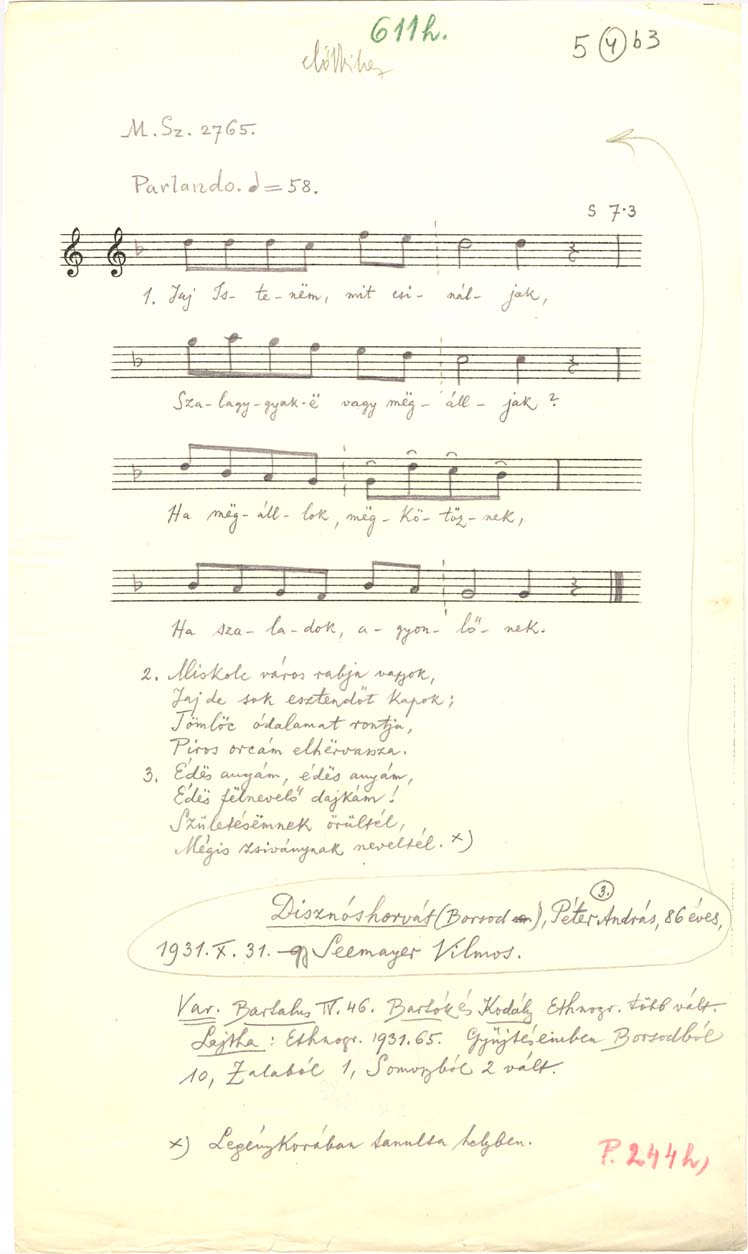 611h.
5 4 b3
M. Sz. 2765.
Parlando. = 58.
S 7.3
1. Jaj Is- te- ném, mit csi- nál- jak,
Sza- lagy- gyak- ë vagy mëg- áll- jak?
Ha mëg- áll- lok, mëg- kö- töz- nek,
Ha sza- la- dok, a- gyon- lő- nek.
2. Miskolc város rabja vagyok,
Jaj de sok esztendőt kapok;
Tömlöc ódalamat rontja,
Piros orcám elhërvassza.
3. Édës anyám, édës anyám,
Édës fëlnevelő dajkám!
Születésëmnek örültél,
Mégis zsiványnak neveltél. x)
3.
Disznóshorvát (Borsod), Péter András, 86 éves,
1931. X. 31. Seemayer Vilmos.
Var. Bartalus IV. 46. Bartók és Kodály Ethnogr. több vált.
Lajtha: Ethnogr. 1931. 65. Gyűjtéseimben Borsodból
10, Zalából 1, Somogyból 2 vált.
x) Legénykorában tanulta helyben.
P. 244h)